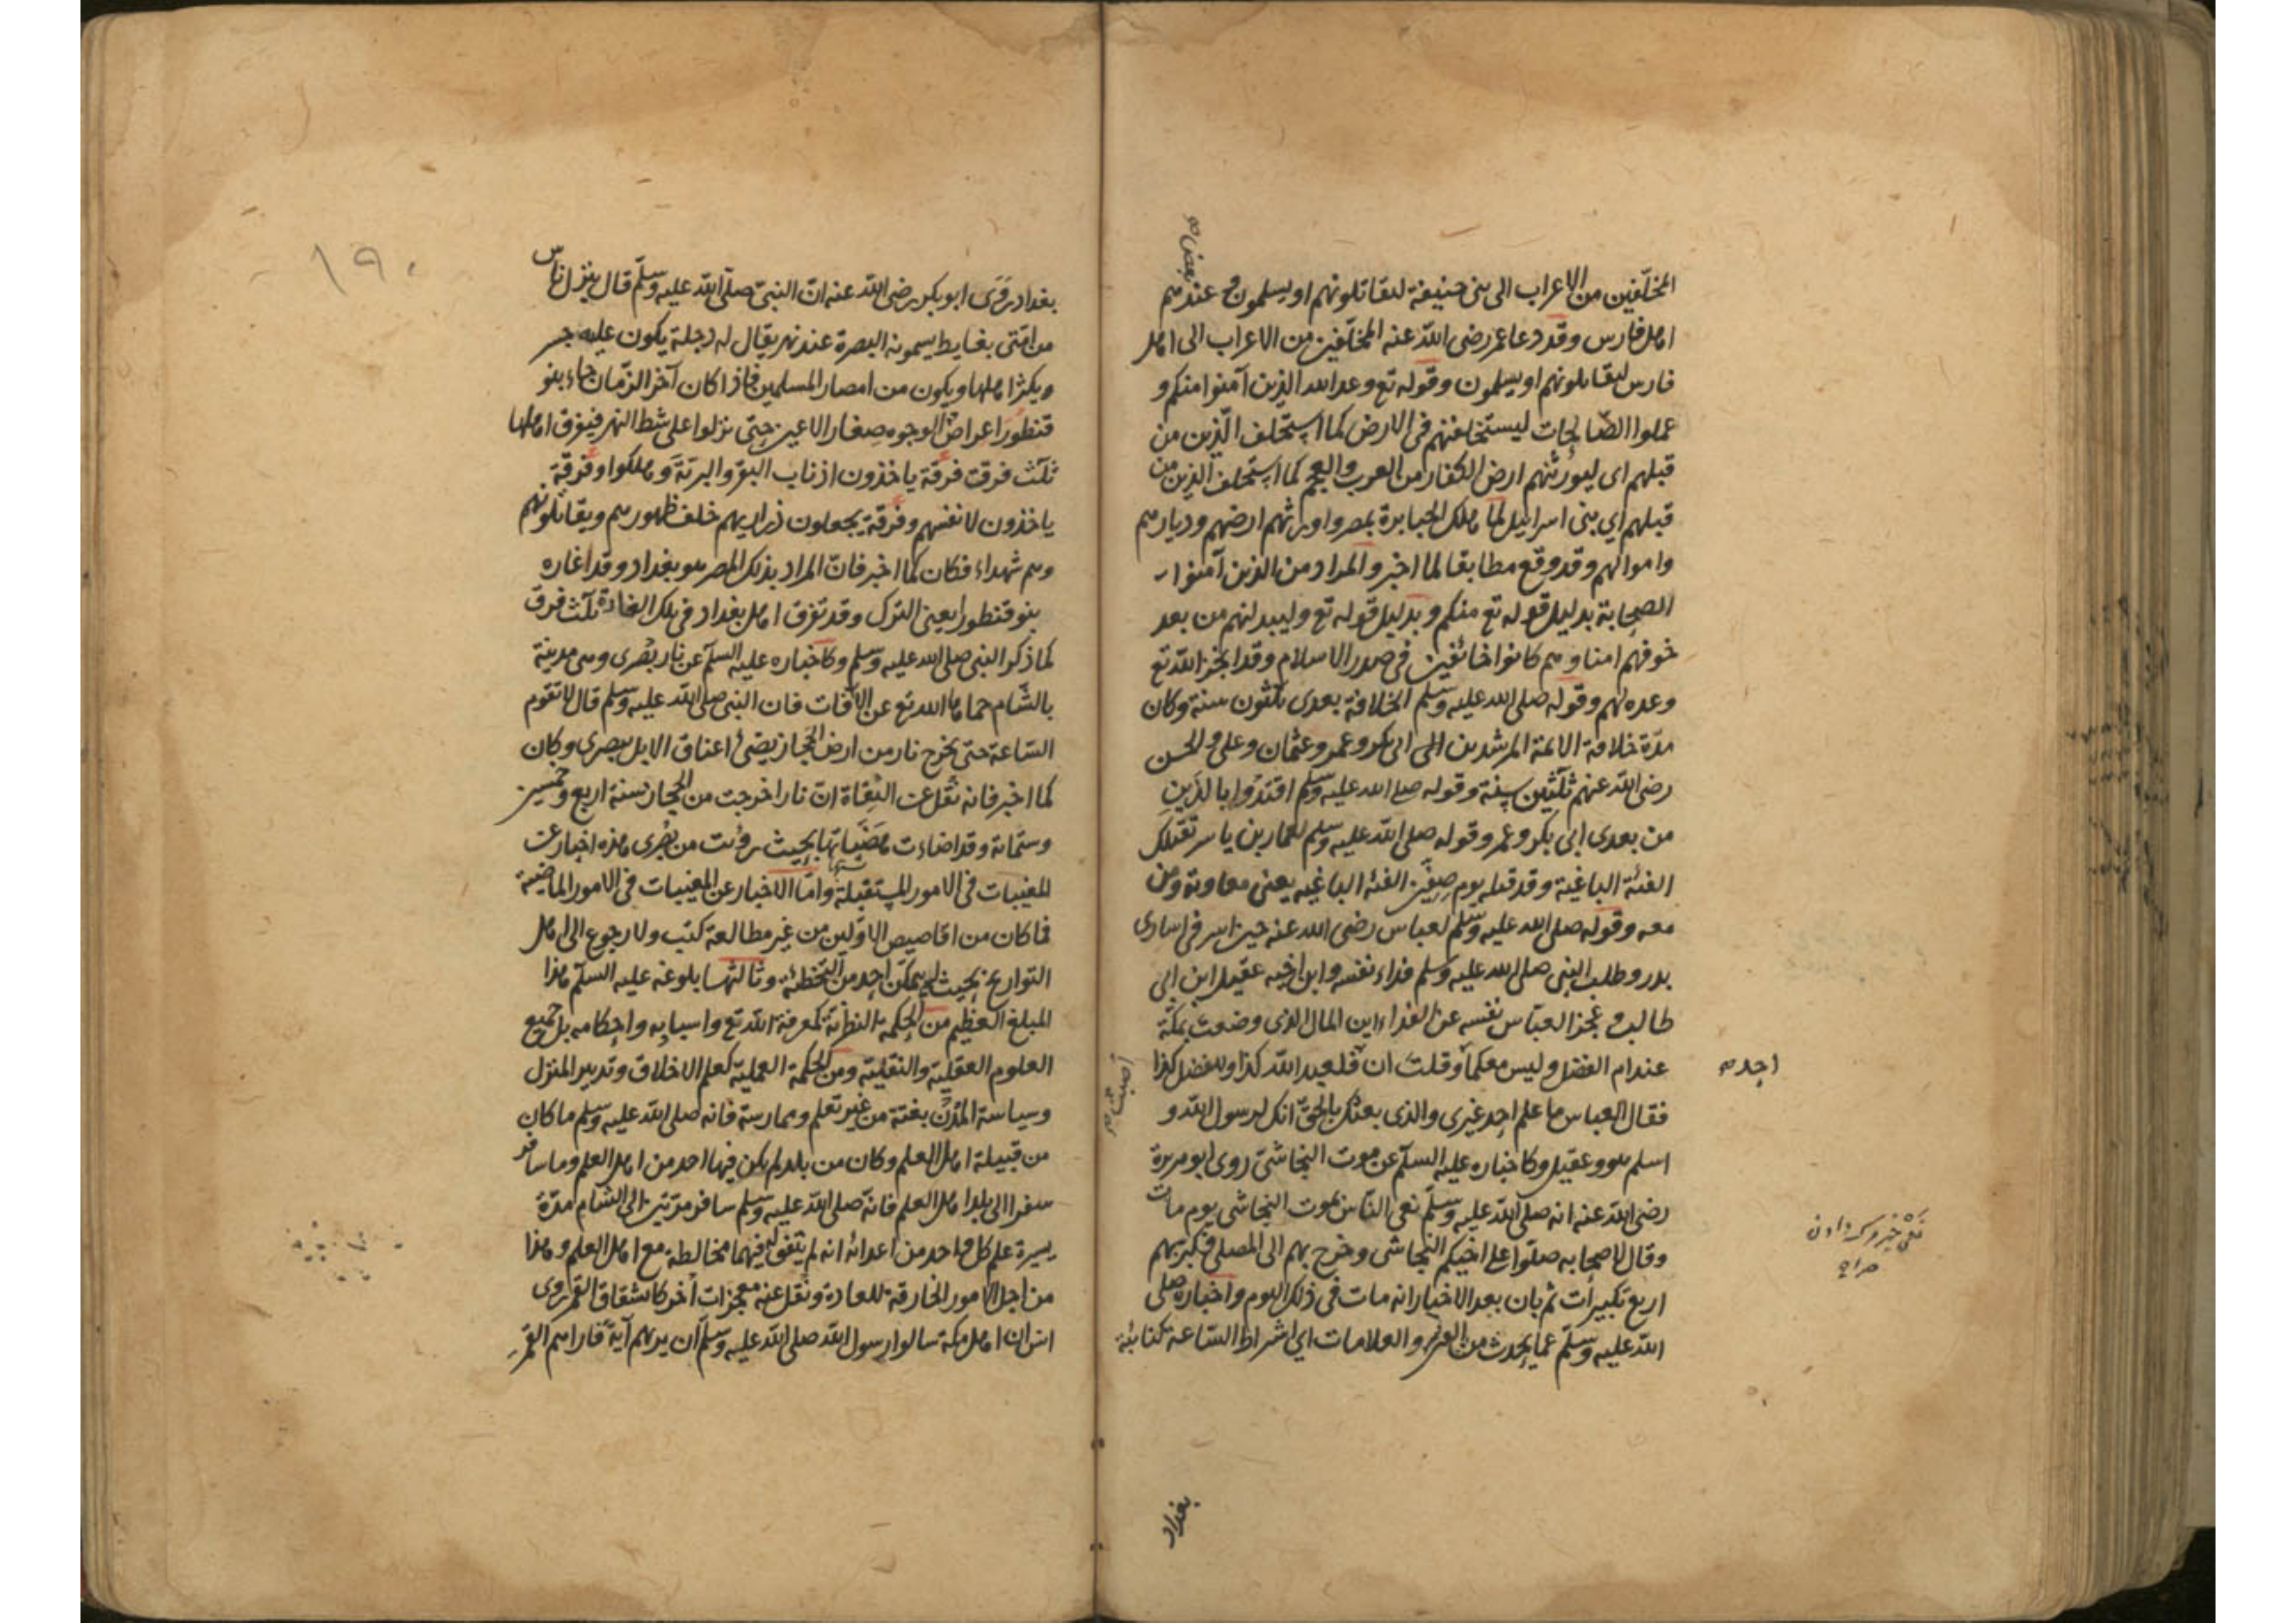 المخلّفين من الاعراب الى بنى حنيفة ليقاتلونهم او يسلمون وعندهم
بعض صح
اهل فارس وقد دعا عمر رضى الله عنه المخلّفين من الاعراب الى اهل
فارس ليقاتلونهم او يسلمون وقوله تع وعد الله الذين آمنوا منكم و
عملوا الصّالحات ليستخلفنهم فى الارض كما استخلف الّذين من
قبلهم اى ليورثنهم ارض الكفار من العرب والعجم كما استخلف الذين من
قبلهم اي بنى اسرائيل لمّا هلك الجبابرة بمصر واورثهم ارضهم وديارهم
واموالهم وقد وقع مطابقا لما اخبر والمراد من الذين آمنوا
الصحابة بدليل قوله تع منكم وبدليل قوله تع وليبدلنهم من بعد
خوفهم امنا وهم كانوا خائفين فى صدر الاسلام وقد انجز الله تع
وعده لهم وقوله صلى الله عليه وسلم الخلافة بعدى ثلثون سنة وكان
مدّة خلافة الائمة المرشدين ابى بكر وعمر وعثمان وعلى والحسن
رضى الله عنهم ثلثين سنة وقوله صلى الله عليه وسلم اقتدوا بالذين
من بعدى ابى بكر وعمر وقوله صلى الله عليه وسلم لعمار بن ياسر تقتلك
الفئة الباغية وقد قتله يوم صفّين الفئة الباغيه يعنى معاوية ومن
معه وقوله صلى الله عليه وسلم لعباس رضى الله عنه حين اسر فى اسارى
بدر وطلب النبى صلى الله عليه وسلم فداء نفسه وابن اخيه عقيل ابن ابى
طالب وعجز العبّاس نفسه عن الفداء اين المال الذى وضعت بمكّة
عند ام الفضل وليس معكما وقلت ان فلعبد الله كذا وللفضل كذا
احد صح
اصبت صح
فقال العباس ما علم احد غيرى والذى بعثك بالحقّ انك لرسول الله و
اسلم هو وعقيل وكاخباره عليه السلم عن موت النجاشى روى ابو هريرة
رضى الله عنه انه صلى الله عليه وسلّم نعى النّاس بموت النجاشى يوم مات
وقال لاصحابه صلّوا على اخيكم النجاشى وخرج بهم الى المصلى فكبر بهم
اربع تكبيرات ثم بان بعد الاخبار انه مات فى ذلك اليوم واخباره صلى
الله عليه وسلّم عما يحدث من الفتن والعلامات اي اشراط السّاعة كنائبة
بغداد
١٩٠
بغداد روى ابو بكر رضى الله عنه انّ النبىّ صلّى الله عليه وسلّم قال ينزل ناس
من امّتى بغايط يسمونه البصرة عند نهر يقال له دجلة يكون عليه جسر
ويكثر اهلها ويكون من امصار المسلمين فاذا كان آخر الزّمان جاء بنو
قنطورا عراض الوجوه صغار الاعين حتى نزلوا على شط النهر فيفرق اهلها
ثلث فرق فرقة ياخذون اذناب البقر والبرية وهلكوا وفرقة
ياخذون لانفسهم وفرقة يجعلون ذراريهم خلف ظهورهم ويقاتلونهم
وهم شهداء فكان كما اخبر فانّ المراد بذلك المصر هو بغداد وقد اغاره
بنو قنطورا يعنى الترك وقد تفرق اهل بغداد فى تلك الغارة ثلث فرق
كما ذكر النبى صلى الله عليه وسلم وكاخباره عليه السلم عن نار بصرى وهى مدينة
بالشّام حماها الله تع عن الآفات فان النبى صلى الله عليه وسلم قال لا تقوم
السّاعة حتى تخرج نار من ارض الحجاز يضئ اعناق الابل ببصرى وكان
كما اخبر فانه نقل عن الثقاة انّ نارا خرجت من الحجاز سنة اربع وخمسين
وستمائة وقد اضاءت هضباتها بحيث رؤيت من بصرى هذه اخبار عن
المغيبات فى الامور المستقبلة وامّا الاخبار عن المغيبات فى الامور الماضية
فما كان من اقاصيص الاوّلين من غير مطالعة كتب ولا رجوع الى اهل
التواريخ بحيث لم يمكّن احد من التخطئة وثالثها بلوغه عليه السلم هذا
المبلغ العظيم من الحكمة النظرية كمعرفة الله تع واسبابه واحكامه بل جميع
العلوم العقليّة والنقليّة ومن الحكمة العمليّة كعلم الاخلاق وتدبير المنزل
وسياسة المدن بغتة من غير تعلّم وممارسة فانه صلى الله عليه وسلم ما كان
من قبيلة اهل العلم وكان من بلد لم يكن فيها احد من اهل العلم وما سافر
سفرا الى بلد اهل العلم فانّه صلى الله عليه وسلم سافر مرّتين الى الشام مدّة
يسيرة علم كل واحد من اعدائه انه لم يتفق له فيهما مخالطة مع اهل العلم وهذا
من اجل الامور الخارقة للعادة ونقل عنه معجزات أخر كانشقاق القمر روى
انس ان اهل مكة سالوا رسول الله صلى الله عليه وسلم أن يريهم آية فاراهم القمر